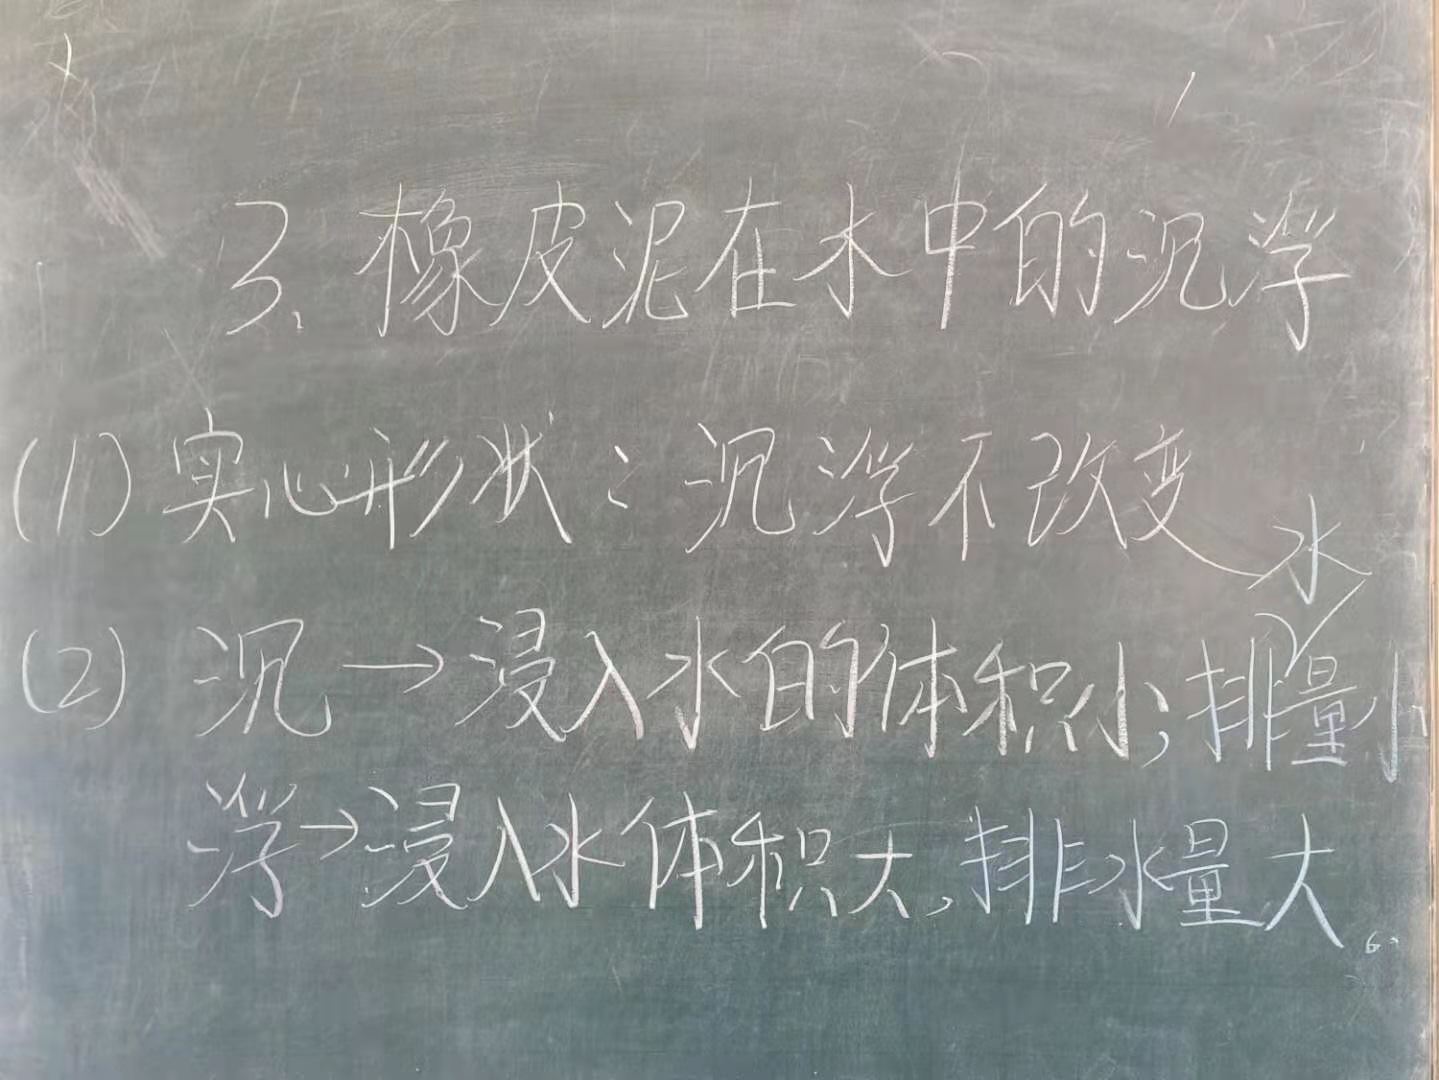 3、橡皮泥在水中的沉浮
(1)实心形状：沉浮不改变
(2) 沉→浸入水的体积小；排水量小
浮→浸入水体积大，排水量大。